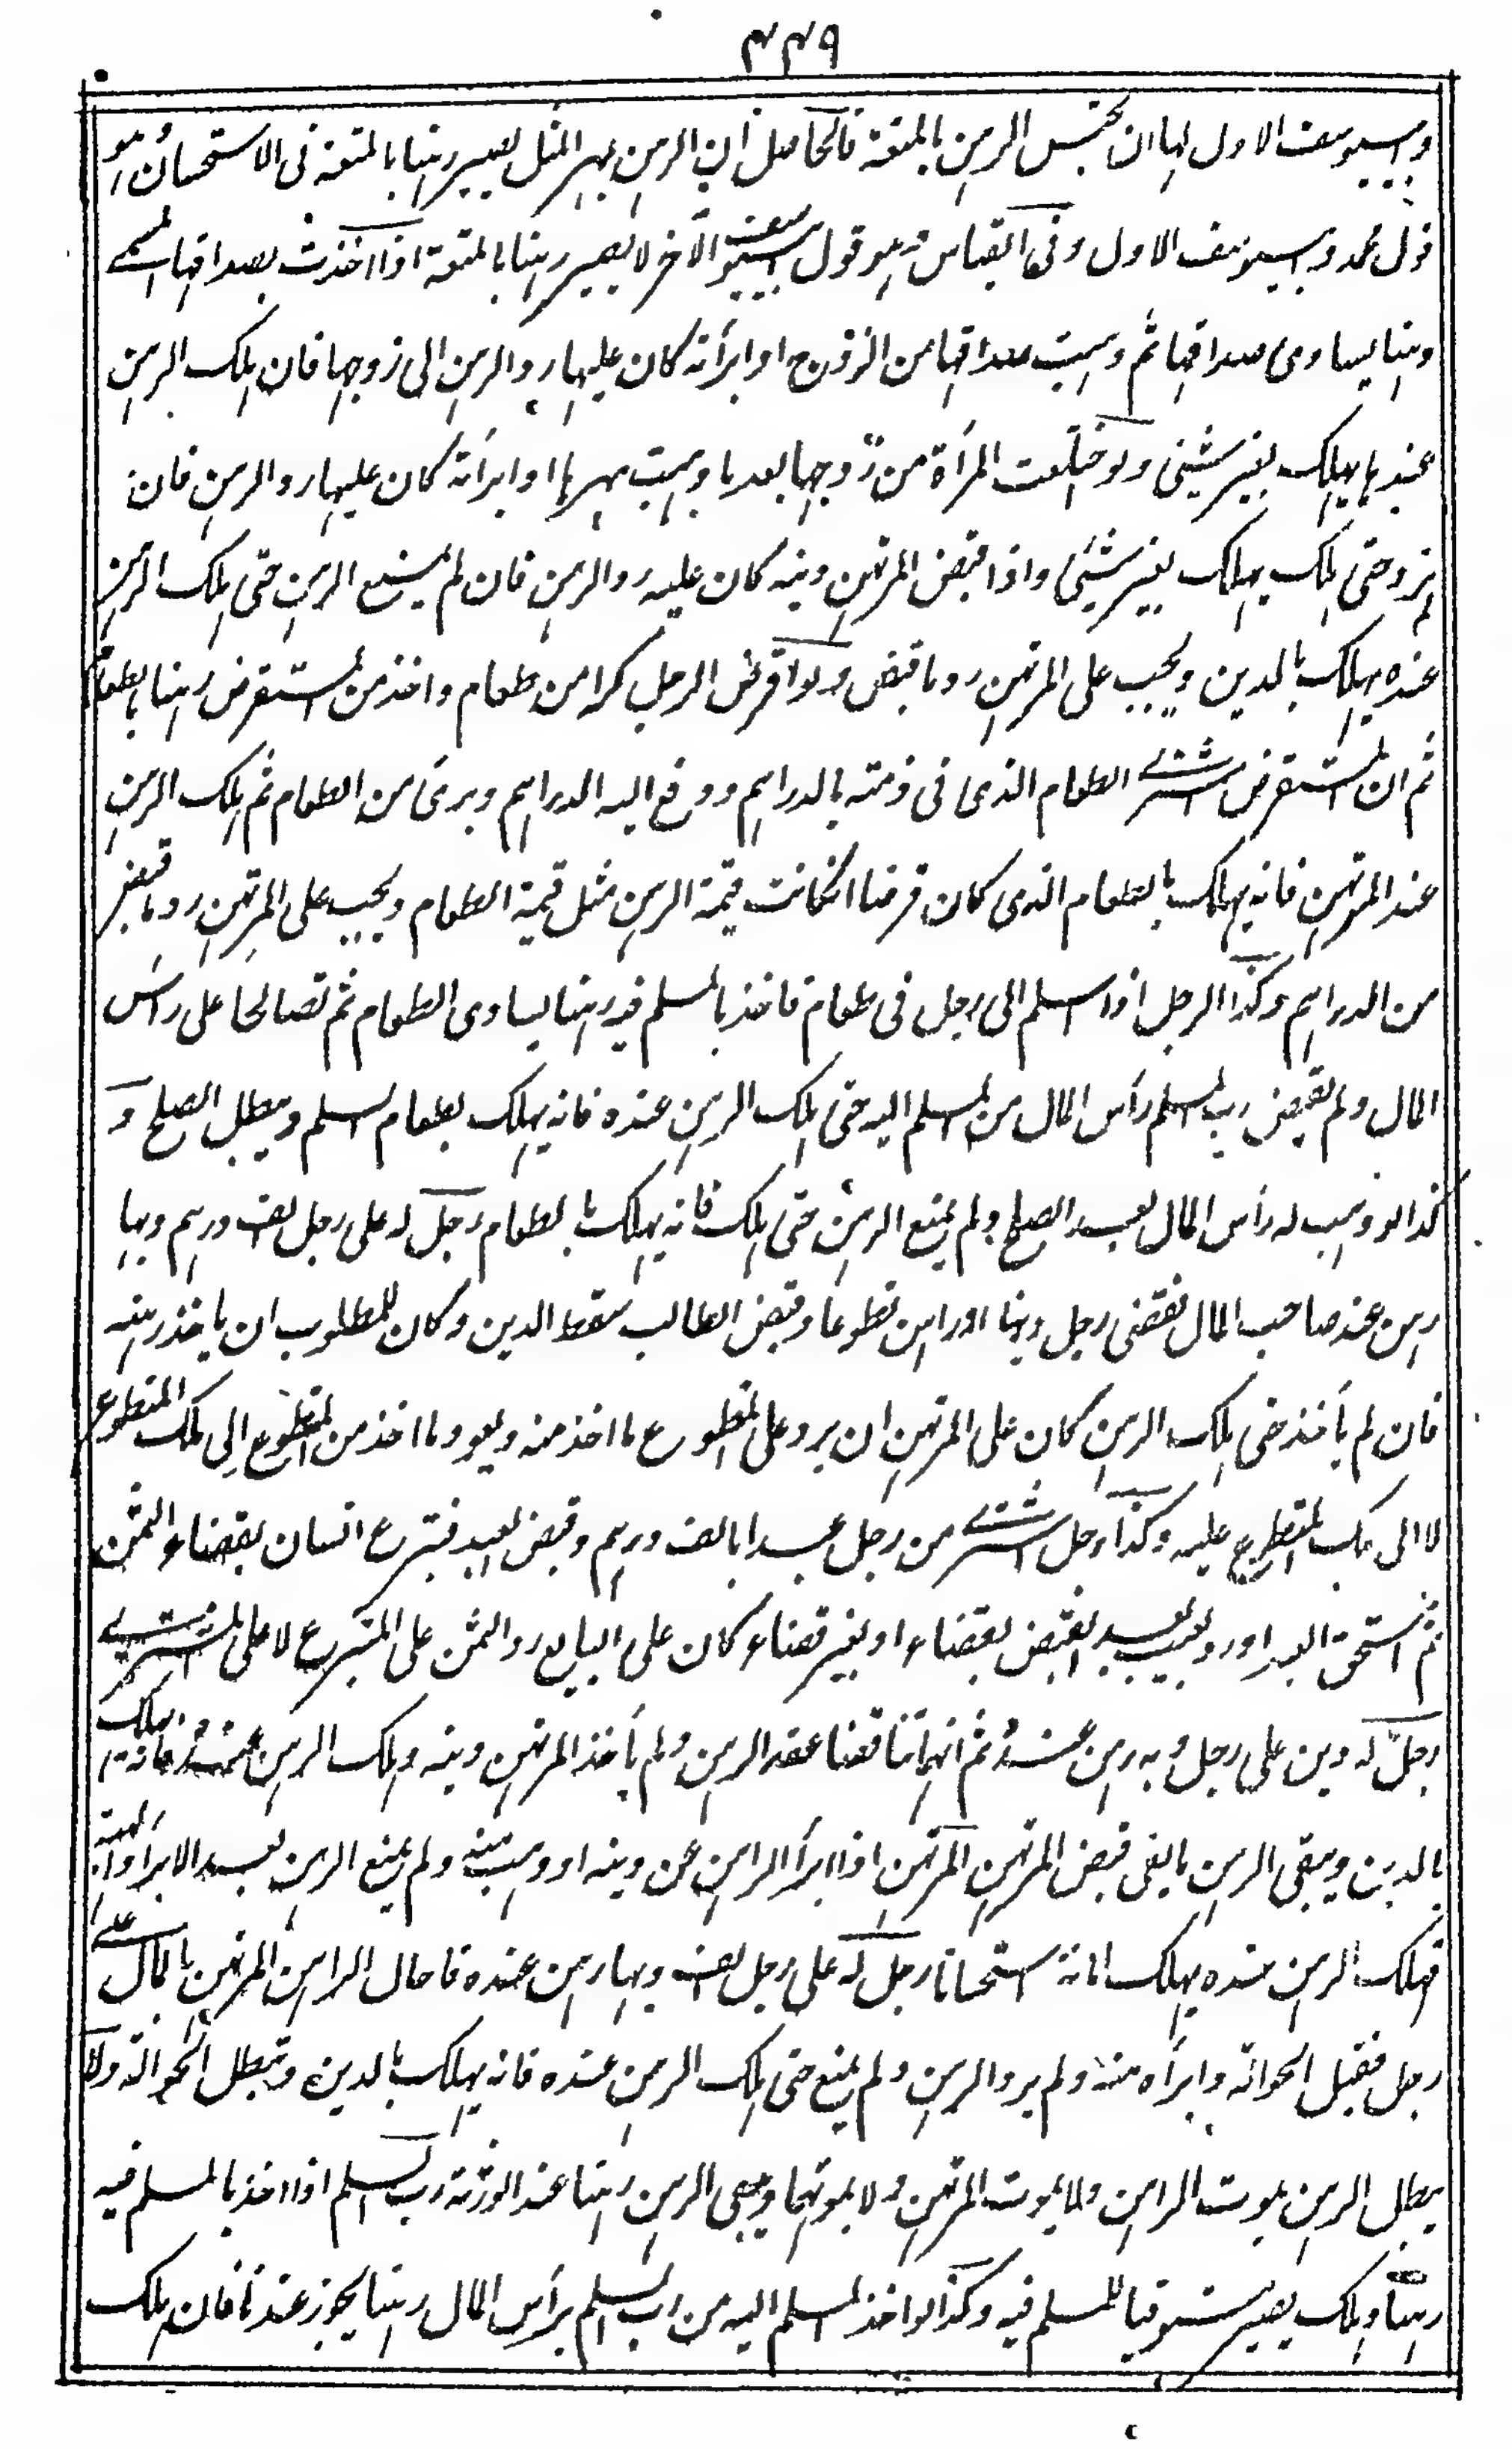 ۴۴۹
وابیوسف الاول لها ان تحبس الرهن بالمتعة فالحاصل ان الرهن بمهر المثل یصیر رهنا بالمتعة فی الاستحسان وهو
قول محمد وابیوسف الاول وفی القیاس وهو قول ابیوسف الآخر لا یصیر رهنا بالمتعة اذا اخذت بصداقها المسمی
رهنا یساوی صداقها ثم وهبت صداقها من الزوج او ابرأته کان علیها رد الرهن الی زوجها فان هلک الرهن
عندها یهلک بغیر شیٔ ولو اختلعت المرأة من زوجها بعد ما وهبت مهرها او ابرأته کان علیها رد الرهن فان
لم ترد حتی هلک یهلک بغیر شیٔ واذا قبض المرتهن دینه کان علیه رد الرهن فان لم یمنع الرهن حتی هلک الرهن
عنده یهلک بالدین ویجب علی المرتهن رد ما قبض ولو اقرض الرجل کرا من طعام واخذ من المستقرض رهنا بالطعام
ثم ان المستقرض اشتری الطعام الذی فی ذمته بالدراهم ودفع الیه الدراهم وبرئ من الطعام ثم هلک الرهن
عند المرتهن فانه یهلک بالطعام الذی کان قرضا انکانت قیمة الرهن مثل قیمة الطعام ویجب علی المرتهن رد ما قبض
من الدراهم وکذا الرجل اذا اسلم الی رجل فی طعام فاخذ بالمسلم فیه رهنا یساوی الطعام ثم تصالحا علی رأس
المال ولم یقبض رب السلم رأس المال من المسلم الیه حتی هلک الرهن عنده فانه یهلک بطعام السلم ویبطل الصلح و
کذا لو وهب له رأس المال بعد الصلح ولم یمنع الرهن حتی هلک فانه یهلک بالطعام رجل له علی رجل الف درهم وبها
رهن عند صاحب المال فقضی رجل دین الراهن تطوعا وقبض الطالب سقط الدین وکان للمطلوب ان یاخذ رهنه
فان لم یأخذ حتی هلک الرهن کان علی المرتهن ان یرد علی المتطوع ما اخذ منه ویعود ما اخذ من المتطوع الی ملک المتطوع
لا الی ملک المتطوع علیه وکذا رجل اشتری من رجل عبدا بالف درهم وقبض العبد فتبرع انسان بقضاء الثمن
ثم استحق العبد او رد بعیب بعد القبض بقضاء او بغیر قضاء کان علی البایع رد الثمن علی المتبرع لا علی المشتری
رجل له دین علی رجل وبه رهن عنده ثم انهما تناقضا عقد الرهن ولم یأخذ المرتهن دینه وهلک الرهن عنده فانه یهلک
بالدین ویبقی الرهن ما بقی قبض المرتهن المرتهن اذا ابرأ الراهن عن دینه او وهب منه ولم یمنع الرهن بعد الابراء او الهبة
فهلک الرهن عنده یهلک امانة استحسانا رجل له علی رجل الف وبها رهن عنده فاحال الراهن المرتهن بالمال علی
رجل فقبل الحوالة وابرأه منه ولم یرد الرهن ولم یمنع حتی هلک الرهن عنده فانه یهلک بالدین وتبطل الحوالة ولا
یبطل الرهن بموت الراهن ولا بموت المرتهن ولا بموتهما ویبقی الرهن رهنا عند الورثة رب السلم اذا اخذ بالمسلم فیه
رهنا وهلک یصیر مستوفیا للمسلم فیه وکذا لو اخذ المسلم الیه من رب السلم برأس المال رهنا یجوز عندنا فان هلک